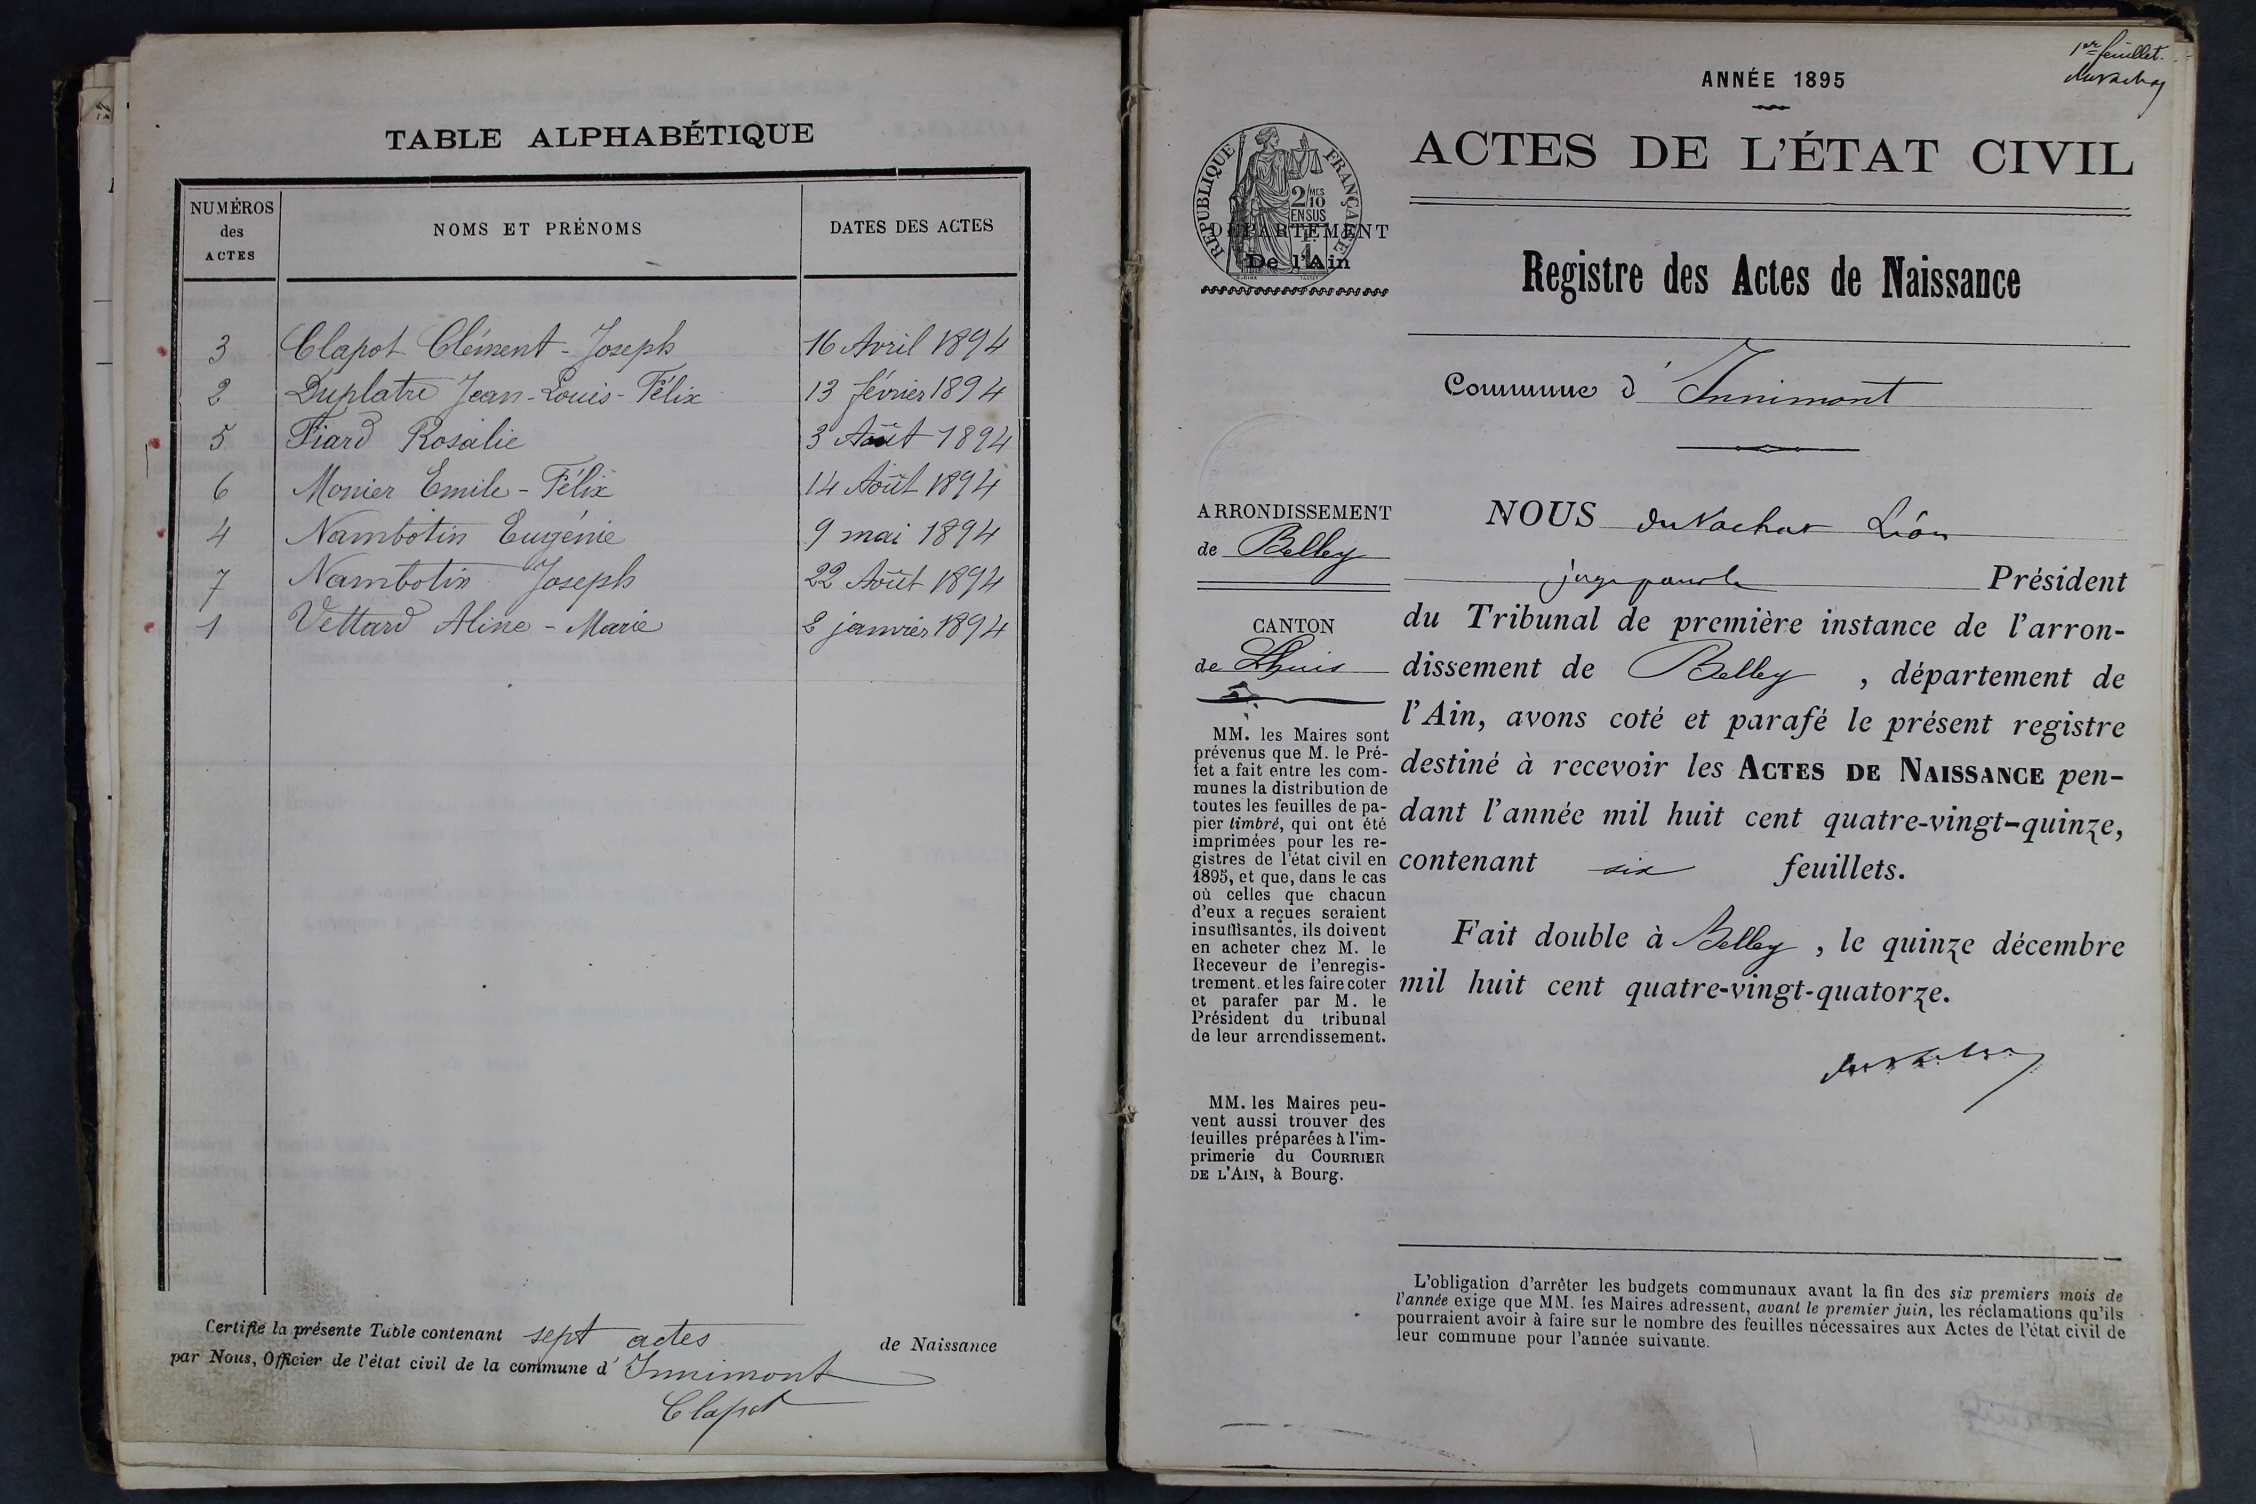 TABLE ALPHABÉTIQUE
NUMÉROS
des
ACTES
NOMS ET PRÉNOMS
DATES DES ACTES
3 Clapot Clément-Joseph 16 Avril 1894
2 Duplatre Jean-Louis-Félix 13 février 1894
5 Fiard Rosalie 3 Août 1894
6 Monier Emile-Félix 14 Août 1894
4 Nambotin Eugénie 9 mai 1894
7 Nambotin Joseph 22 Août 1894
1 Vettard Aline-Marie 2 janvier 1894
Certifié la présente Table contenant sept actes de Naissance
par Nous, Officier de l'état civil de la commune d' Innimont
Clapot
1er feuillet.
ANNÉE 1895
ACTES DE L'ÉTAT CIVIL
RÉPUBLIQUE FRANÇAISE
2/10 MES
EN SUS
DÉPARTEMENT
De l'Ain
Registre des Actes de Naissance
Commune d' Innimont
ARRONDISSEMENT
de Belley
CANTON
de Lhuis
MM. les Maires sont
prévenus que M. le Pré-
fet a fait entre les com-
munes la distribution de
toutes les feuilles de pa-
pier timbré, qui ont été
imprimées pour les re-
gistres de l'état civil en
1895, et que, dans le cas
où celles que chacun
d'eux a reçues seraient
insuffisantes, ils doivent
en acheter chez M. le
Receveur de l'enregis-
trement et les faire coter
et parafer par M. le
Président du tribunal
de leur arrondissement.
MM. les Maires peu-
vent aussi trouver des
feuilles préparées à l'im-
primerie du COURRIER
DE L'AIN, à Bourg.
NOUS Léon
Président
du Tribunal de première instance de l'arron-
dissement de Belley, département de
l'Ain, avons coté et parafé le présent registre
destiné à recevoir les ACTES DE NAISSANCE pen-
dant l'année mil huit cent quatre-vingt-quinze,
contenant six feuillets.
Fait double à Belley, le quinze décembre
mil huit cent quatre-vingt-quatorze.
L'obligation d'arrêter les budgets communaux avant la fin des six premiers mois de
l'année exige que MM. les Maires adressent, avant le premier juin, les réclamations qu'ils
pourraient avoir à faire sur le nombre des feuilles nécessaires aux Actes de l'état civil de
leur commune pour l'année suivante.